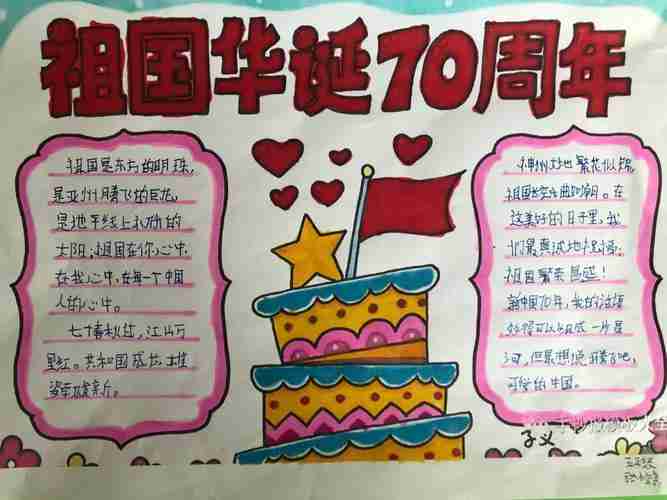 祖国华诞70周年
祖国是东方的明珠,
是亚洲腾飞的巨龙,
是地平线上初升的
太阳;祖国在你心中,
在我心中,在每一个中国
人的心中。
七十春秋红,江山万
里红。共和国成长,雄
姿焕新。
神州大地繁花似锦,
祖国长空曲如潮。在
这美好的日子里,我
们最真诚地祝福,
祖国繁荣昌盛!
新中国70年,我的话语
可以成一片星
河,但最想说
可爱的中国。
子义